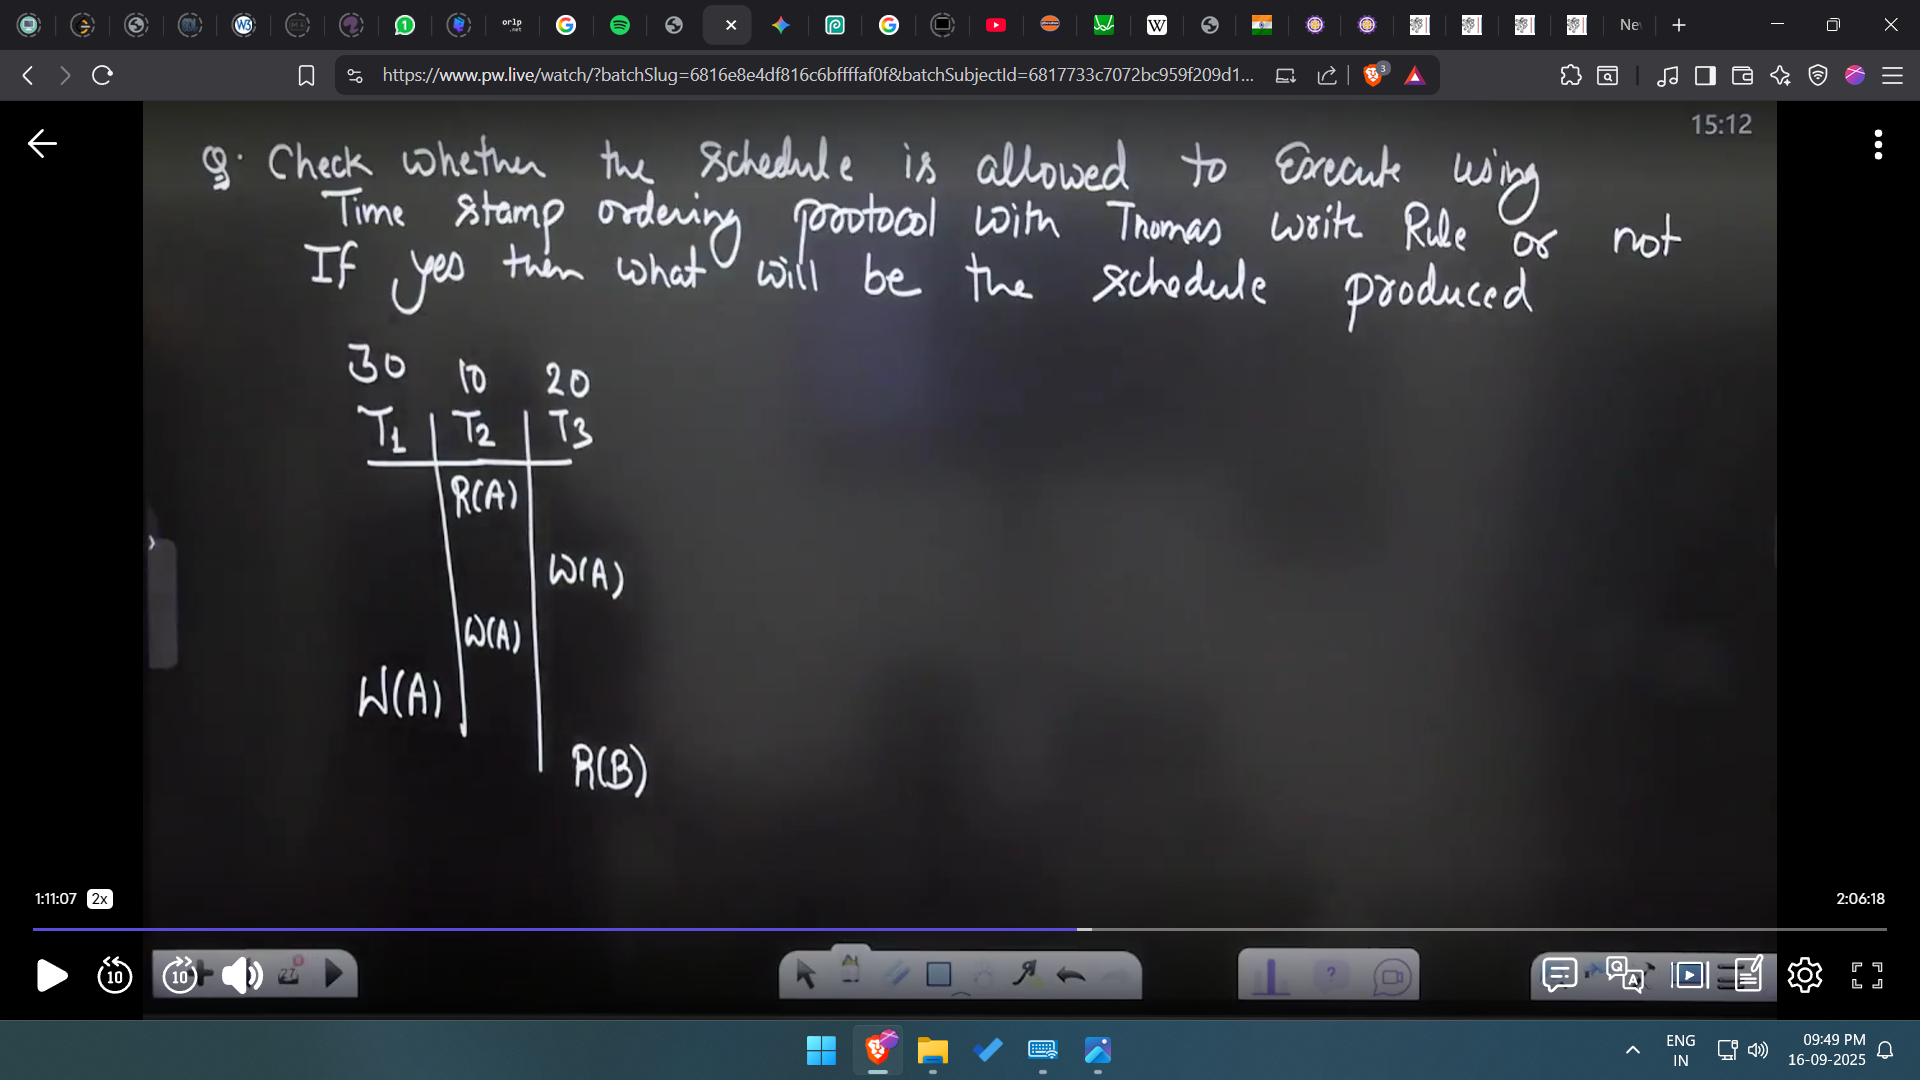 W3
1
orlp
.net
W
Ne
https://www.pw.live/watch/?batchSlug=6816e8e4df816c6bffffaf0f&batchSubjectId=6817733c7072bc959f209d1...
3
15:12
Q. Check whether the schedule is allowed to Execute using
Time stamp ordering protocol with Thomas write Rule or not
If yes then what will be the schedule produced
30 10 20
T1 T2 T3
R(A)
W(A)
W(A)
W(A)
R(B)
1:11:07 2x
2:06:18
10
10
27
?
Q A
ENG
IN
09:49 PM
16-09-2025